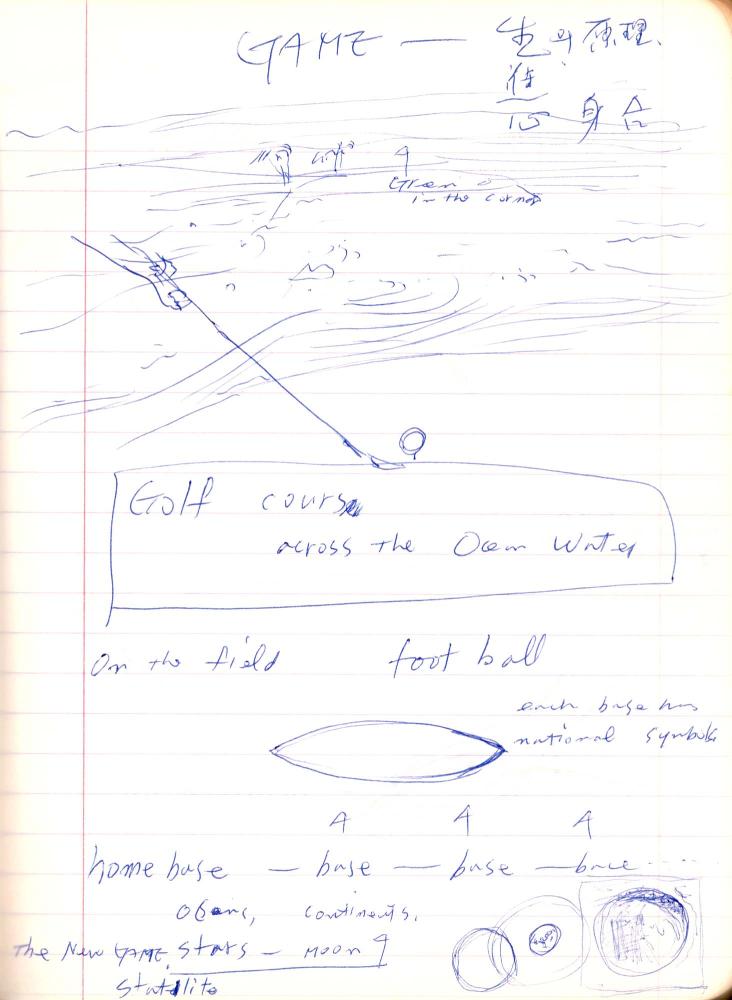 GAME — 生의 原理.
心 身 合
Green
in the corner
Golf course
across the Ocean Water
On the field foot ball
each base has
national symbols
home base — base — base — base ....
continents,
The New GAME. Stars — Moon